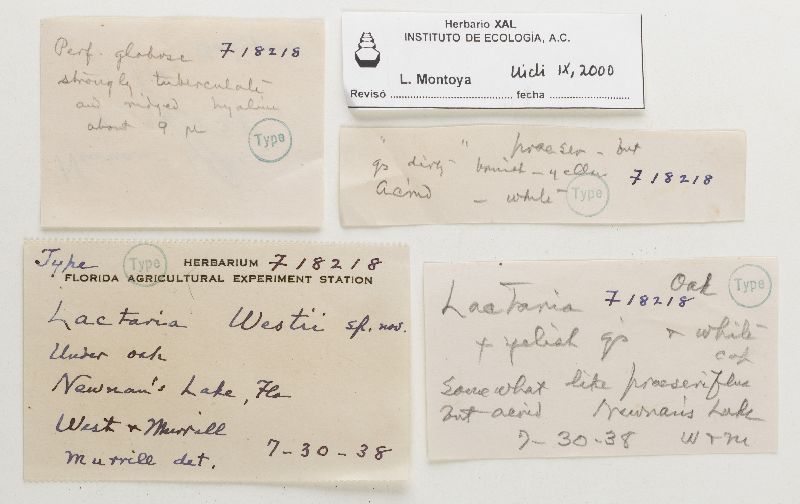 Perf. globose F18218
strongly tuberculate
and ridged hyaline
about 9 µ
Type
Herbario XAL
INSTITUTO DE ECOLOGÍA, A.C.
L. Montoya IX, 2000
Revisó fecha
" " praeser - but
gs dirty - - yellow F18218
Acrid - white Type
Type Type HERBARIUM F18218
FLORIDA AGRICULTURAL EXPERIMENT STATION
Lactaria Westii sp. nov.
Under oak
Newnan's Lake, Fla
West & Murrill
7-30-38
Murrill det.
Oak Type
Lactaria F18218
+ yelish gs & white
cap
Somewhat like praeseriflua
But acrid Newnan's Lake
7-30-38 W & M